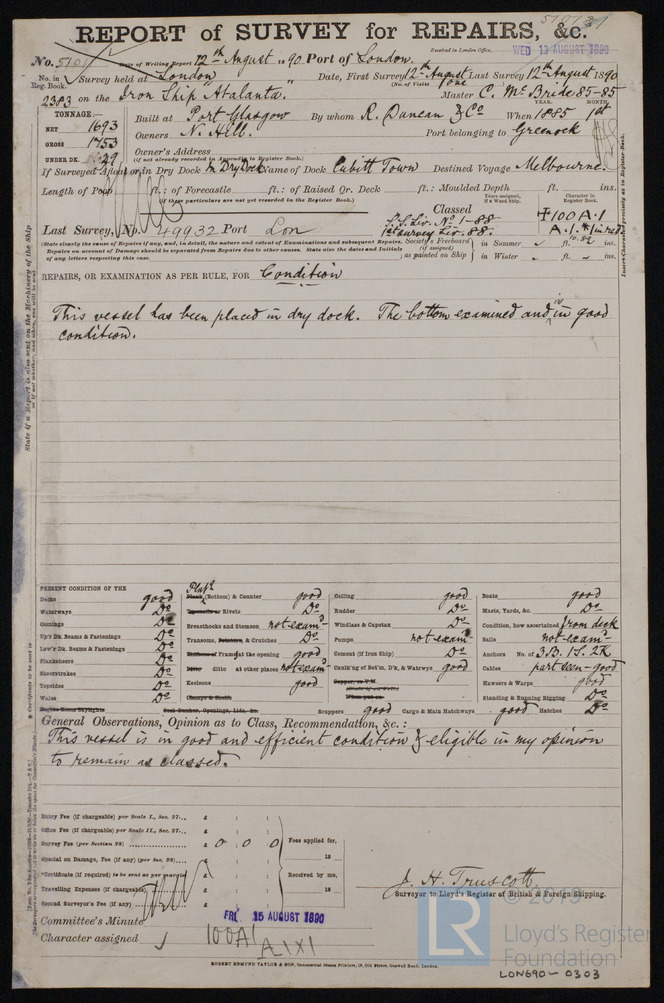 REPORT of SURVEY for REPAIRS, &c.
No. 51011 Date of Writing Report 12th August 1890 Port of London.
Received in London Office, WED 13 AUGUST 1890
No. in Reg. Book. Survey held at London Date, First Survey 12th August Last Survey 12th August 1890
(No. of Visits one)
2303 on the Iron Ship "Atalanta." Master C. McBride 85-85
TONNAGE:— YEAR. MONTH.
NET 1693 Built at Port Glasgow By whom R. Duncan & Co When 1885 1st
GROSS 1753 Owners N. Hill. Port belonging to Greenock
UNDER DK. Owner's Address
(if not already recorded in Appendix to Register Book.)
If Surveyed Afloat or in Dry Dock In Dry Dock Name of Dock Cubitt Town Destined Voyage Melbourne.
Length of Poop ft.: of Forecastle ft.: of Raised Qr. Deck ft.: Moulded Depth ft. ins.
(if these particulars are not yet recorded in the Register Book.)
Years assigned, if a Wood Ship. Character in Register Book.
Classed
S.S. Liv. No 1-88 ✠100A.1
Last Survey, No. 49932 Port Lon 1st Survey Liv. 88. A.1.
(State clearly the cause of Repairs if any, and, in detail, the nature and extent of Examinations and subsequent Repairs.
Repairs on account of Damage should be separated from Repairs due to other causes. State also the dates and Initials
of any letters respecting this case.
Society's Freeboard (if assigned) as painted on Ship in Summer ft. ins.
in Winter ft. ins.
REPAIRS, OR EXAMINATION AS PER RULE, FOR Condition
This vessel has been placed in dry dock. The bottom examined and is in good
condition.
PRESENT CONDITION OF THE
Decks good
Waterways Do
Comings Do
Up'r Dk. Beams & Fastenings Do
Low'r Dk. Beams & Fastenings Do
Planksheers Do
Sheerstrakes Do
Topsides Do
Wales Do
Engine Room Skylights
Plat'g Plank (Bottom) & Counter good
Treenails or Rivets Do
Breasthooks and Stemson not examd
Transoms, Pointers, & Crutches Do
Timbers of Frame at the opening good
Ditto ditto at other places not examd
Keelsons good
Clamps & Shelfs
Coal Bunker, Openings, Lids, &c.
Ceiling good
Rudder Do
Windlass & Capstan Do
Pumps not examd
Cement (if Iron Ship) Do
Caulk'ng of Bot'm, D'k, & Watrwys good
Copper, or Y.M.
Scuppers good Cargo & Main Hatchways good Hatches Do
Boats good
Masts, Yards, &c. Do
Condition, how ascertained from deck
Sails not examd
Anchors No. of 3B. 1S. 2K
Cables part seen - good
Hawsers & Warps good
Standing & Running Rigging Do
General Observations, Opinion as to Class, Recommendation, &c. :
This vessel is in good and efficient condition & eligible in my opinion
to remain as classed.
Entry Fee (if chargeable) per Scale I., Sec. 27... £ : :
Office Fee (if chargeable) per Scale II., Sec. 27... £ : :
Survey Fee (per Section 28) £ 0 0 0 Fees applied for,
Special on Damage, Fee (if any) (per Sec. 28) £ : : 18
*Certificate (if required) to be sent as per margin £ : : Received by me,
Travelling Expenses (if chargeable) £ : : 18
Second Surveyor's Fee (if any) £ : :
J. H. Truscott
Surveyor to Lloyd's Register of British & Foreign Shipping.
Committee's Minute FRI. 15 AUGUST 1890
Character assigned 100A1
A.1X1
ROBERT EDMUND TAYLOR & SON, Commercial Steam Printers, 19, Old Street, Goswell Road, London.
© 2019
LR Lloyd's Register
Foundation
LON690-0303